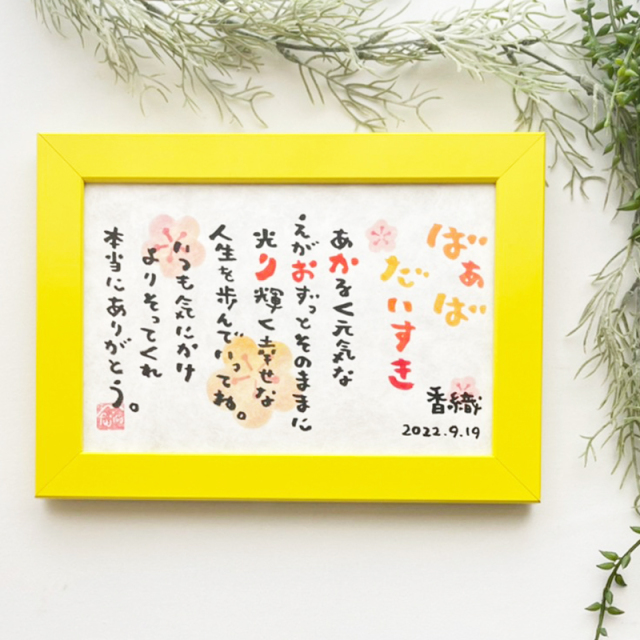 ばぁば
だいすき
香織
2022.9.19
あかるく元気な
えがおずっとそのままに
光り輝く幸せな
人生を歩んでいってね。
いつも気にかけ
よりそってくれ
本当にありがとう。